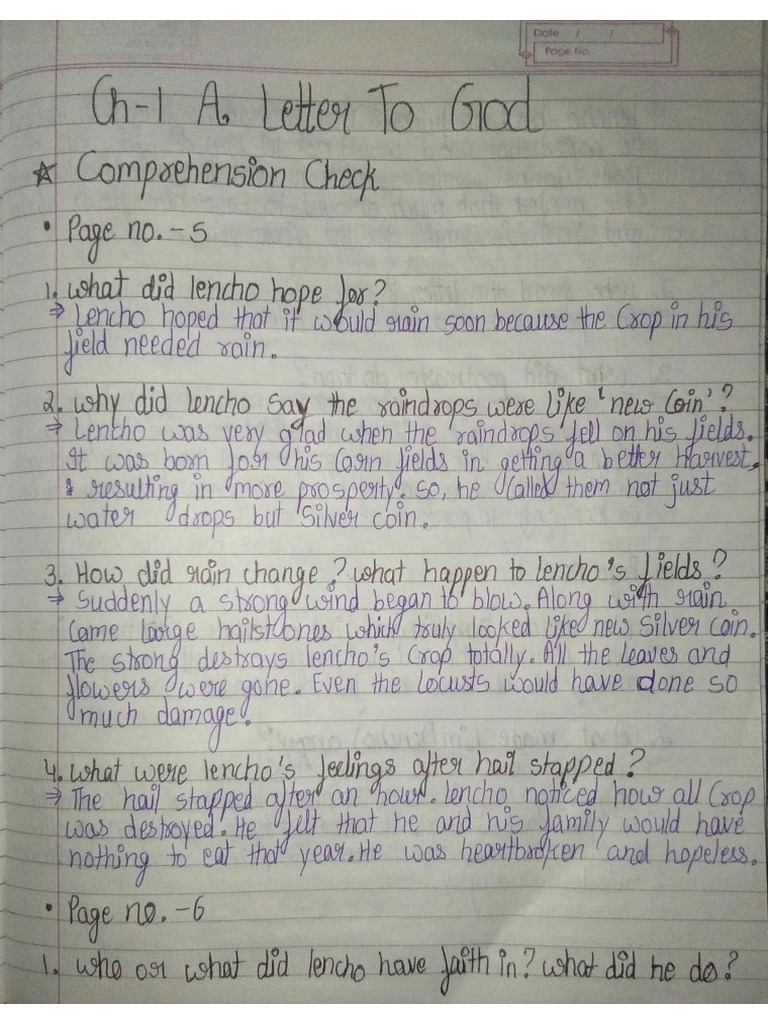 Date / /
Page No.
Ch-1 A Letter To God
☆ Comprehension Check
• Page no. - 5
1. What did lencho hope for?
⇒ Lencho hoped that it would rain soon because the Crop in his
field needed rain.
2. why did lencho say the raindrops were like 'new Coin'?
⇒ Lencho was very glad when the raindrops fell on his fields.
It was born for his Corn fields in getting a better Harvest,
& resulting in more prosperty. so, he Called them not just
water drops but Silver coin.
3. How did rain change? what happen to lencho's fields?
⇒ Suddenly a strong wind began to blow. Along with rain
Came large hailstones which truly looked like new Silver Coin.
The strong destrays lencho's Crop totally. All the leaves and
flowers were gone. Even the locusts would have done so
much damage.
4. what were lencho's feelings after hail stopped?
⇒ The hail stopped after an hour. lencho noticed how all Crop
was destroyed. He felt that he and his family would have
nothing to eat that year. He was heartbroken and hopeless.
• Page no. - 6
1. who or what did lencho have faith in? what did he do?